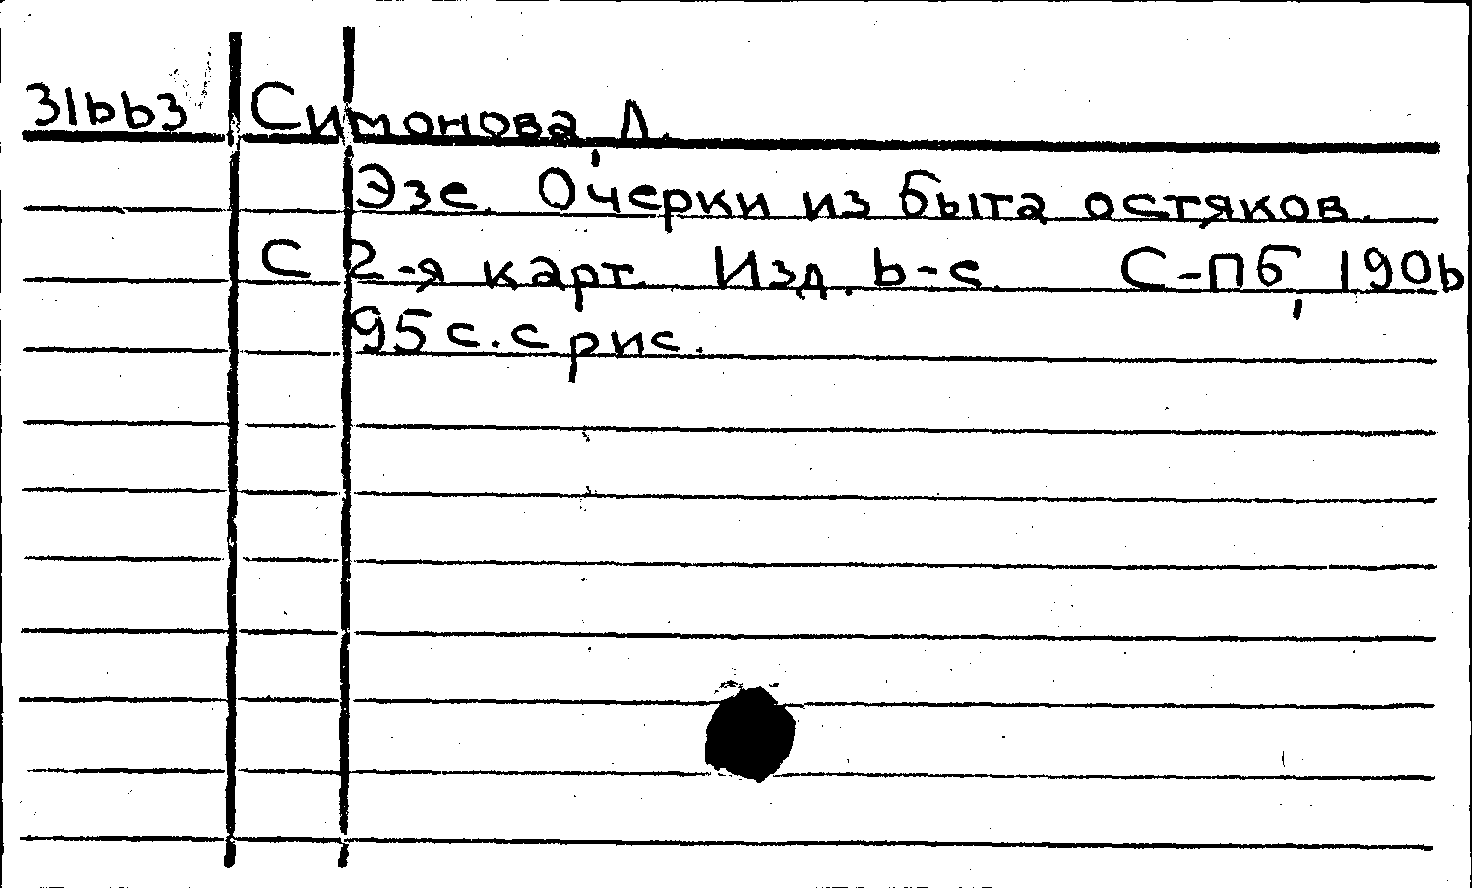 31663 Симонова, Л.
Эзе. Очерки из быта остяков.
С 2-я карт. Изд. 6-е. С-Пб, 1906
95 с. с рис.